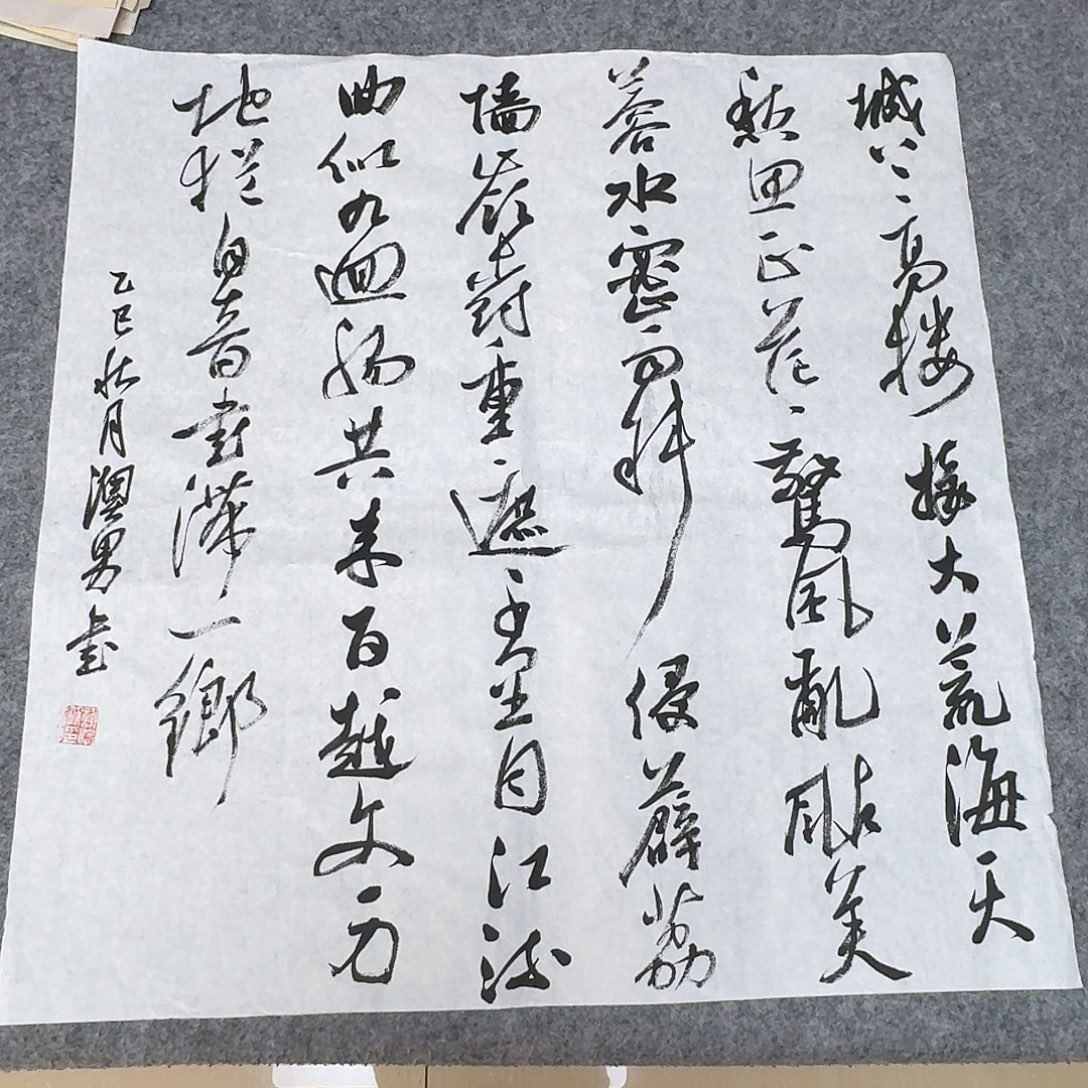 城上高樓接大荒海天
愁思正茫〻驚風亂颭芙
蓉水密雨斜侵薜荔
墻嶺樹重遮千里目江流
曲似九迴腸共來百越文身
地猶自音書滯一鄉
乙巳秋月男書